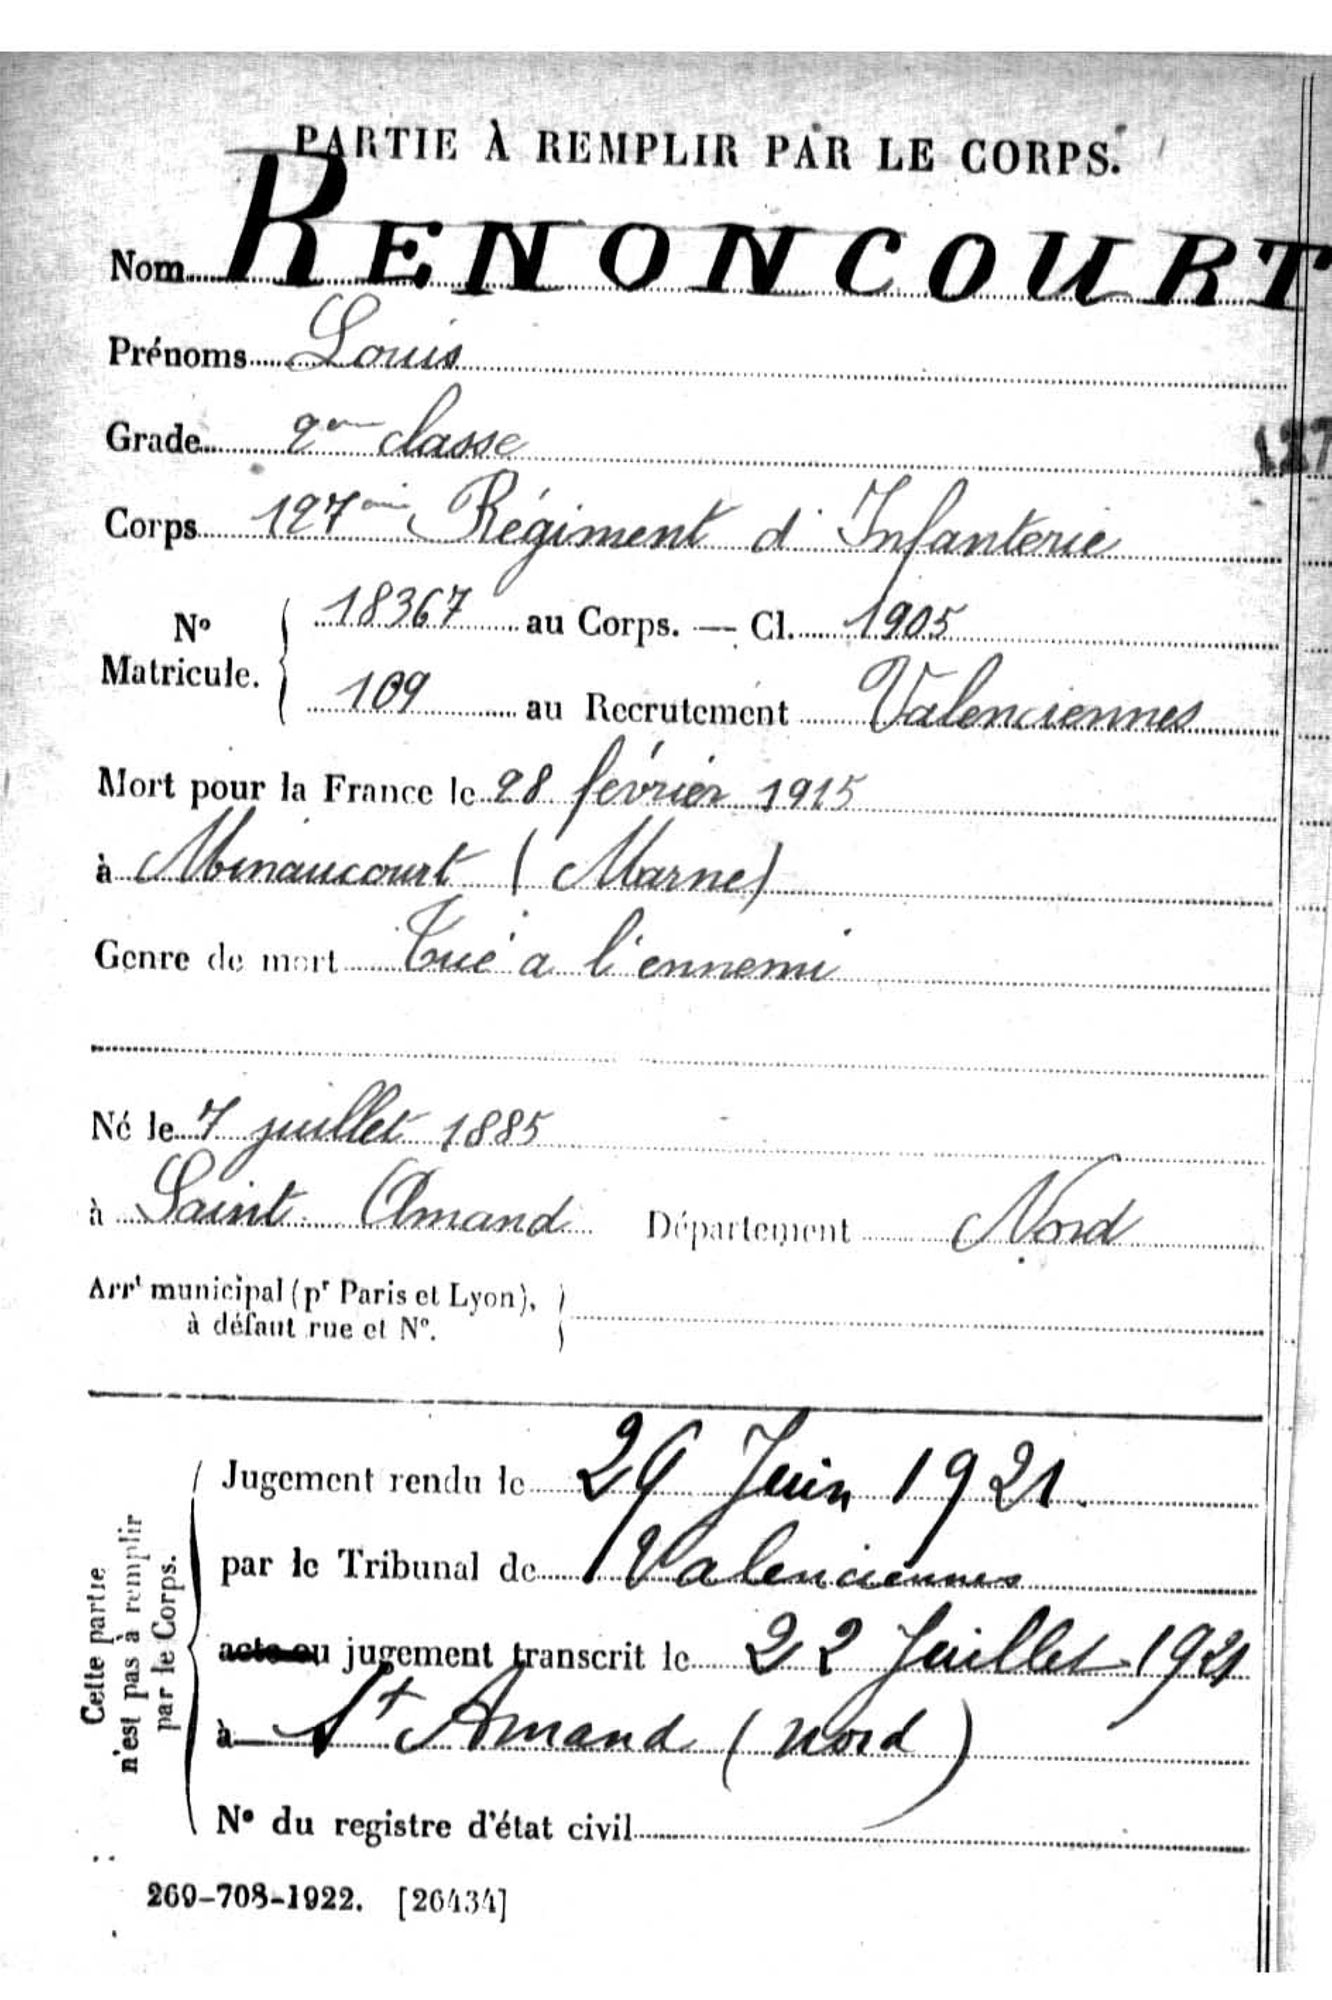 PARTIE À REMPLIR PAR LE CORPS.
Nom RENONCOURT
Prénoms Louis
Grade 2me classe
127
Corps 127ème Régiment d'Infanterie
No Matricule. { 18367 au Corps. — Cl. 1905
109 au Recrutement Valenciennes
Mort pour la France le 28 février 1915
à Minaucourt (Marne)
Genre de mort Tué a l'ennemi
Né le 7 juillet 1885
à Saint Amand Département Nord
Arrt municipal (pr Paris et Lyon),
à défaut rue et N°.
Cette partie
n'est pas à remplir
par le Corps.
Jugement rendu le 29 Juin 1921.
par le Tribunal de Valenciennes
acte ou jugement transcrit le 22 Juillet 1921
à St Amand (Nord)
N° du registre d'état civil
269-708-1922. [26434]